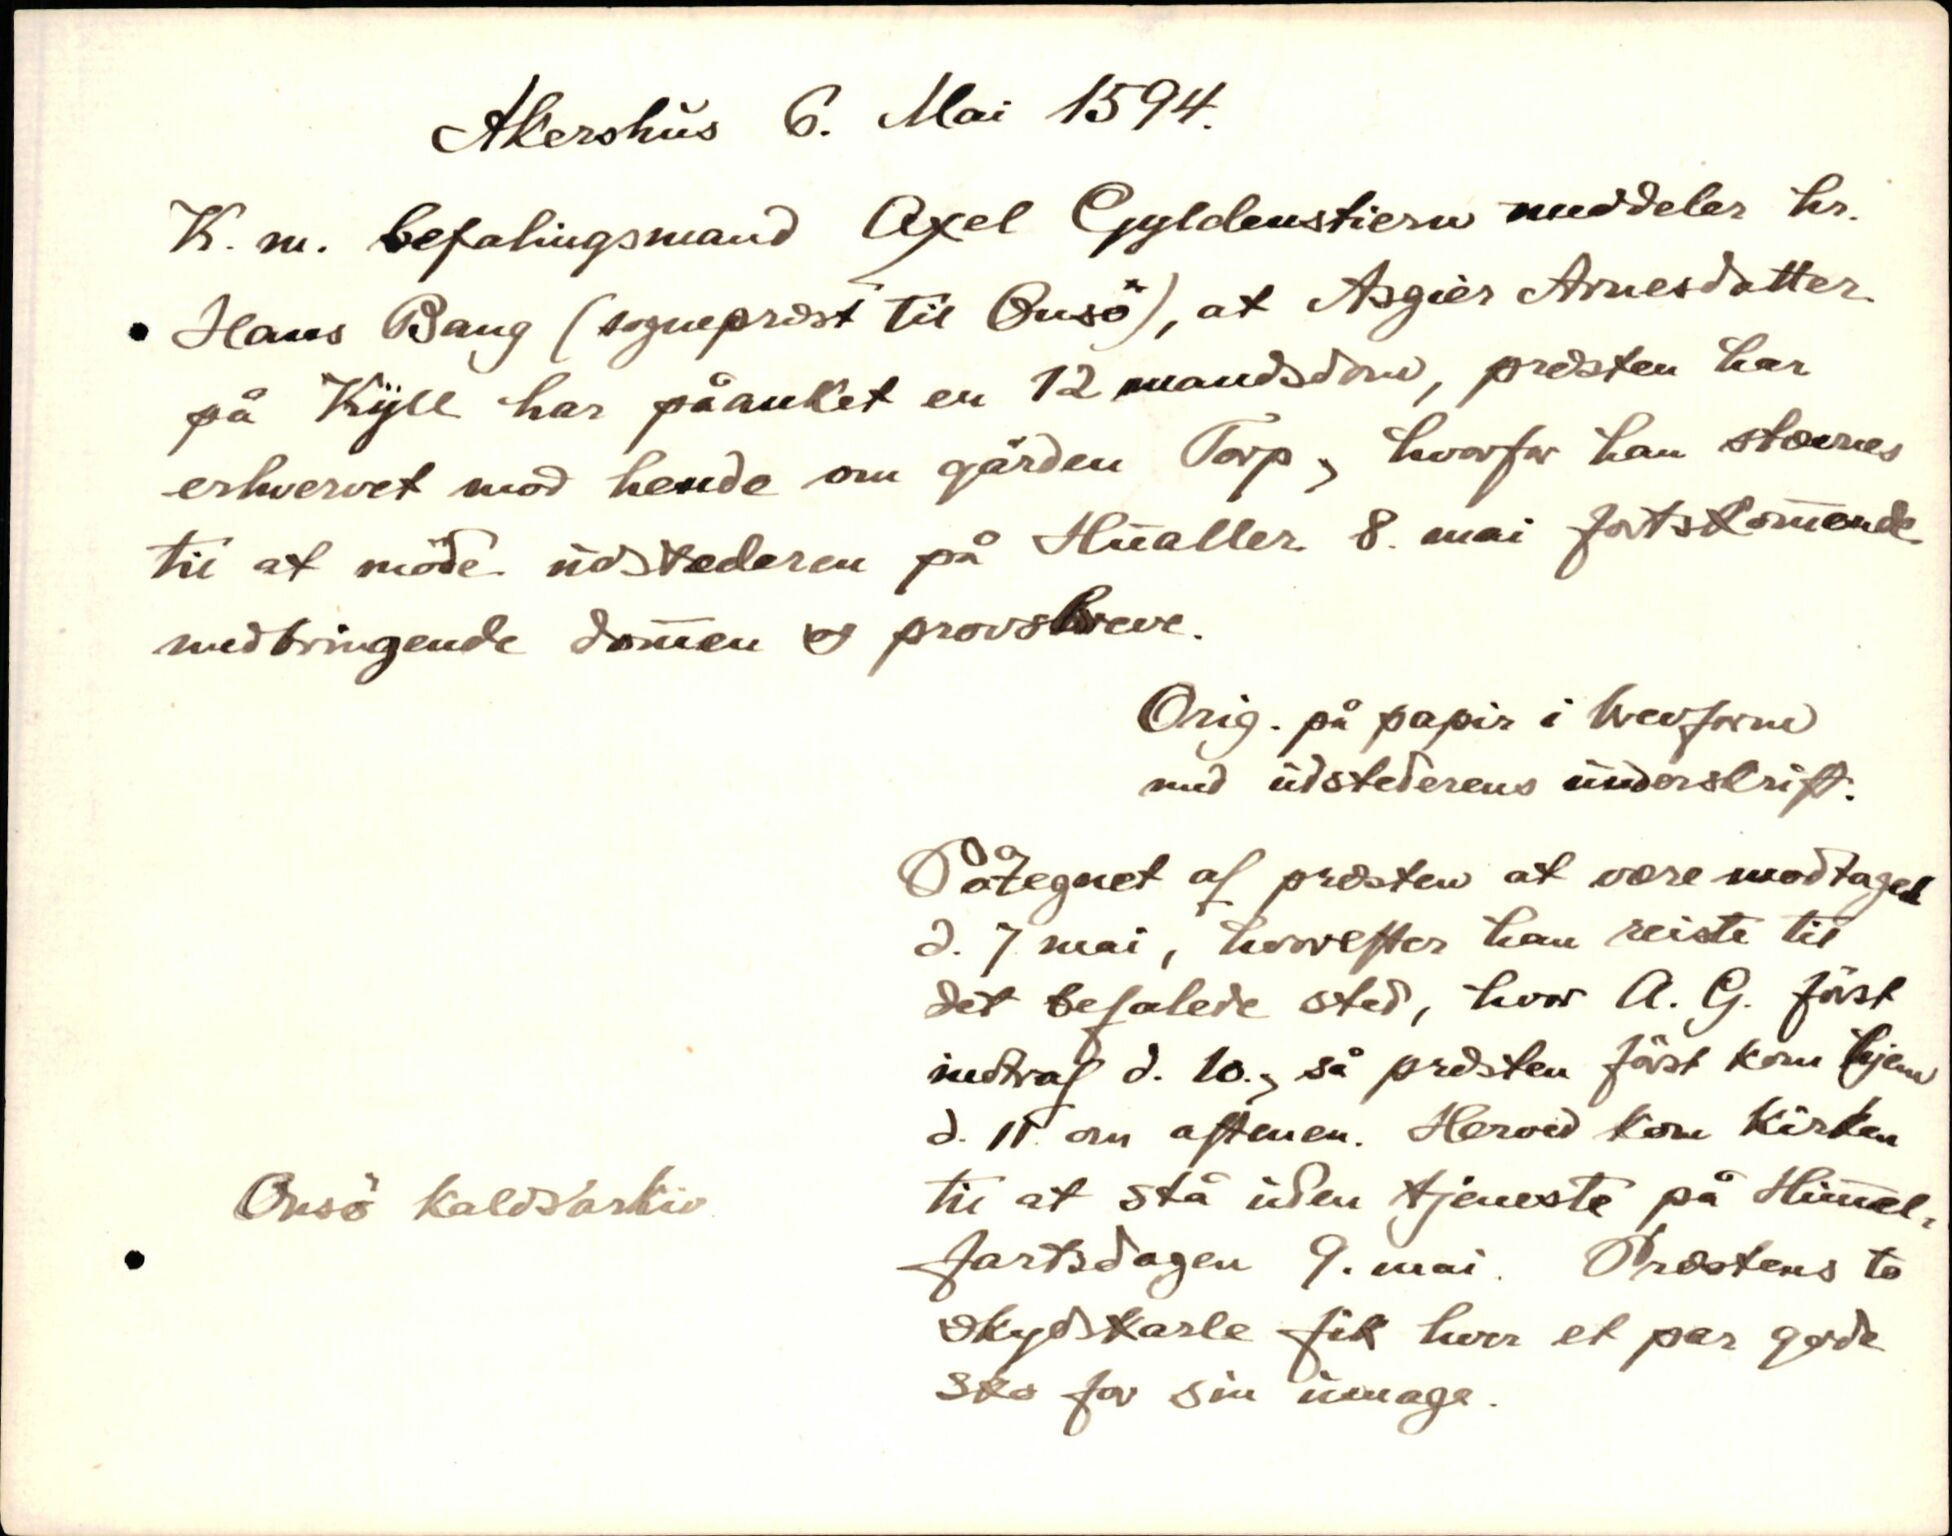 Akershus 6. Mai 1594.
K. m. befalingsmand Axel Gyldenstiern meddeler hr.
Hans Bang (sogneprest til Onsö), at Asgier Arnesdatter
på Kÿll har påanket en 12 mandsdom, presten har
erhvervet mod hende om gården Torp, hvorfor han stevnes
til at möde udstederen på Hualler 8. mai förstkom̄ende
medbringende dom̄en og provsbreve.
Orig. på papir i brevform
med udstederens underskrift.
Påtegnet af presten at være modtaget
d. 7 mai, hvorefter han reiste til
det befalede sted, hvor A. G. först
indtraf d. 10., så presten först kom hjem
d. 11. om aftenen. Herved kom kirken
til at stå uden tjeneste på Him̄el-
fartsdagen 9. mai. Prestens to
skydskarle fik hver et par gode
sko for sin umage.
Onsö kaldsarkiv